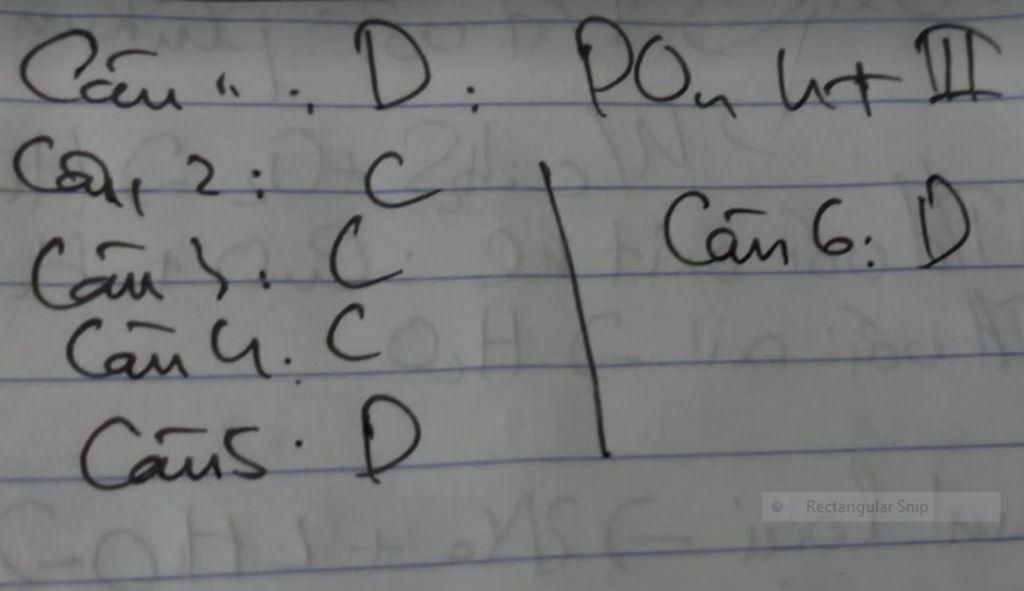 Câu 1: D: PO₄ ht III
Câu 2: C
Câu 3: C
Câu 4: C
Câu 5: D
Câu 6: D
Rectangular Snip